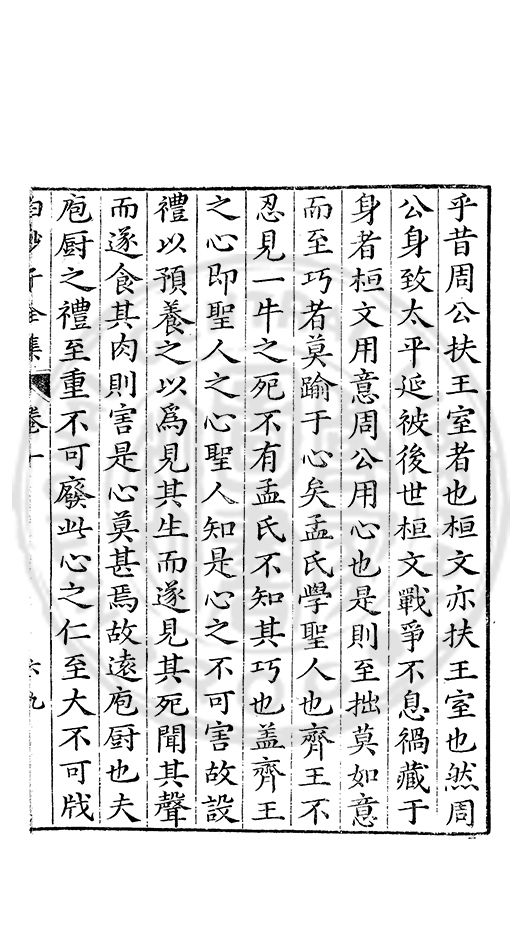 乎昔周公扶王室者也桓文亦扶王室也然周
公身致太平延被後世桓文戰爭不息禍藏于
身者桓文用意周公用心也是則至拙莫如意
而至巧者莫踰于心矣孟氏學聖人也齊王不
忍見一牛之死不有孟氏不知其巧也盖齊王
之心即聖人之心聖人知是心之不可害故設
禮以預養之以爲見其生而遂見其死聞其聲
而遂食其肉則害是心莫甚焉故遠庖厨也夫
庖厨之禮至重不可廢此心之仁至大不可戕
白沙子全集 卷一 六九